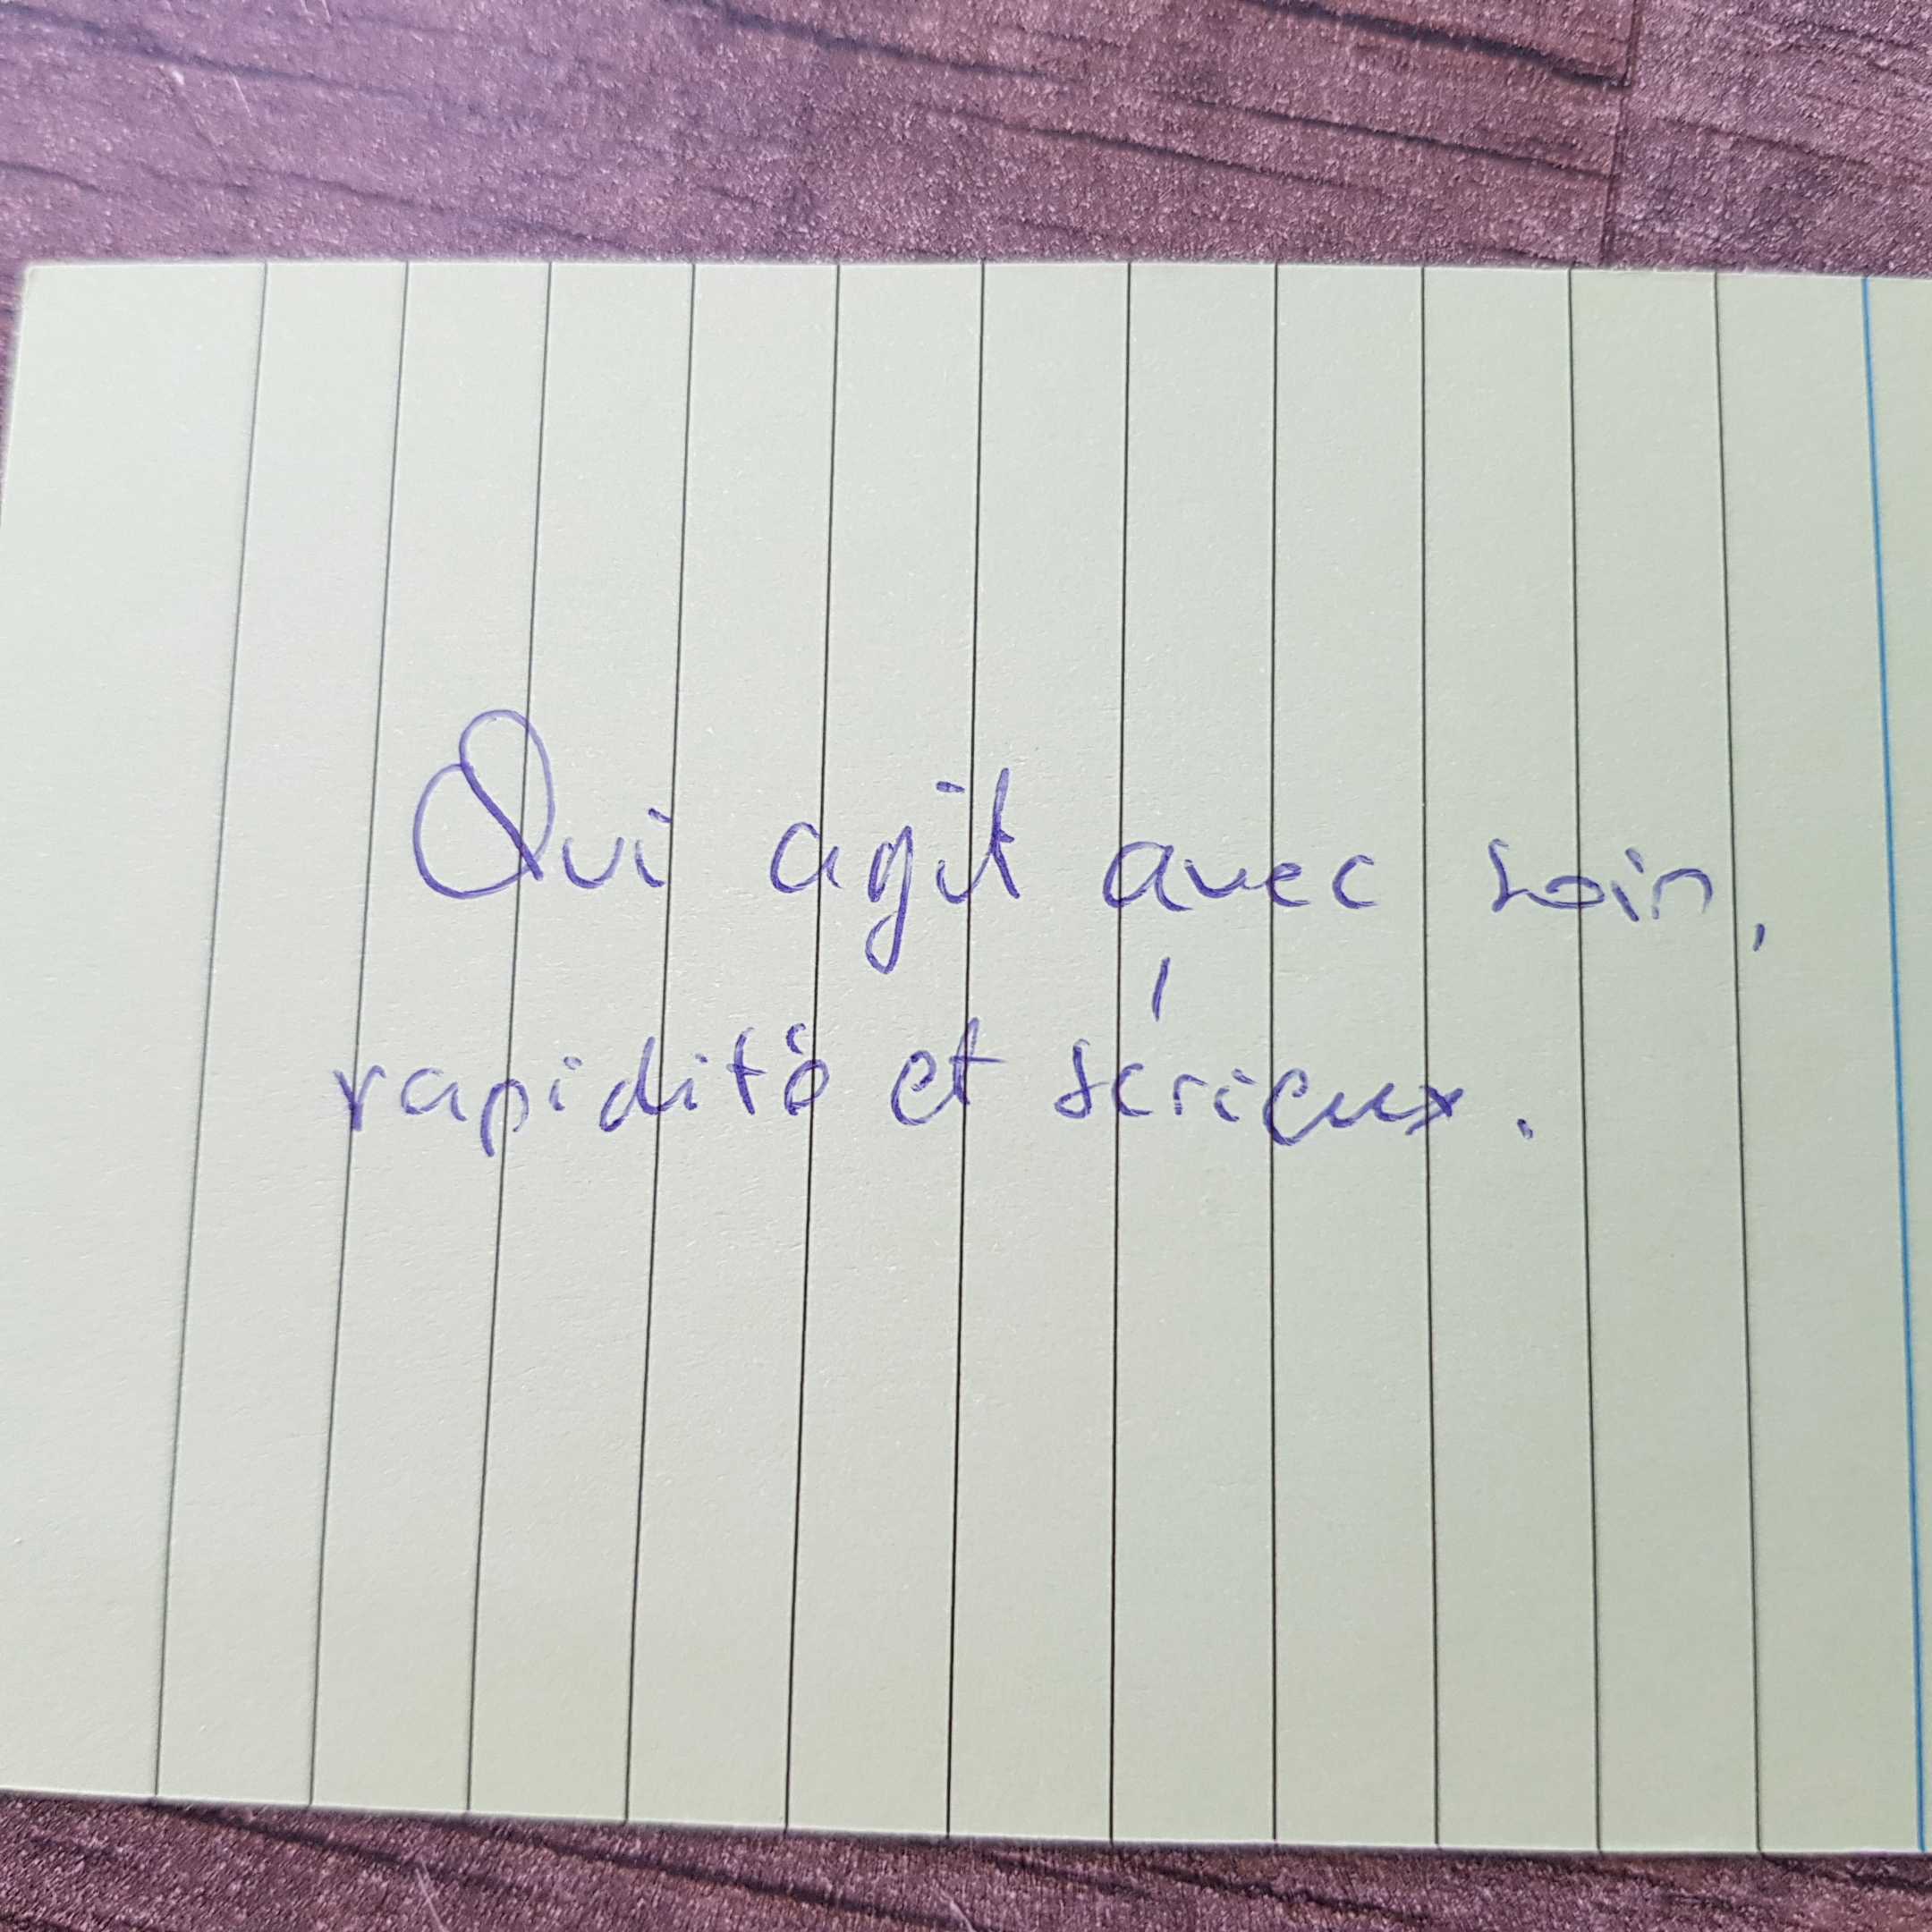 Qui agit avec soin,
rapidité et sérieux.